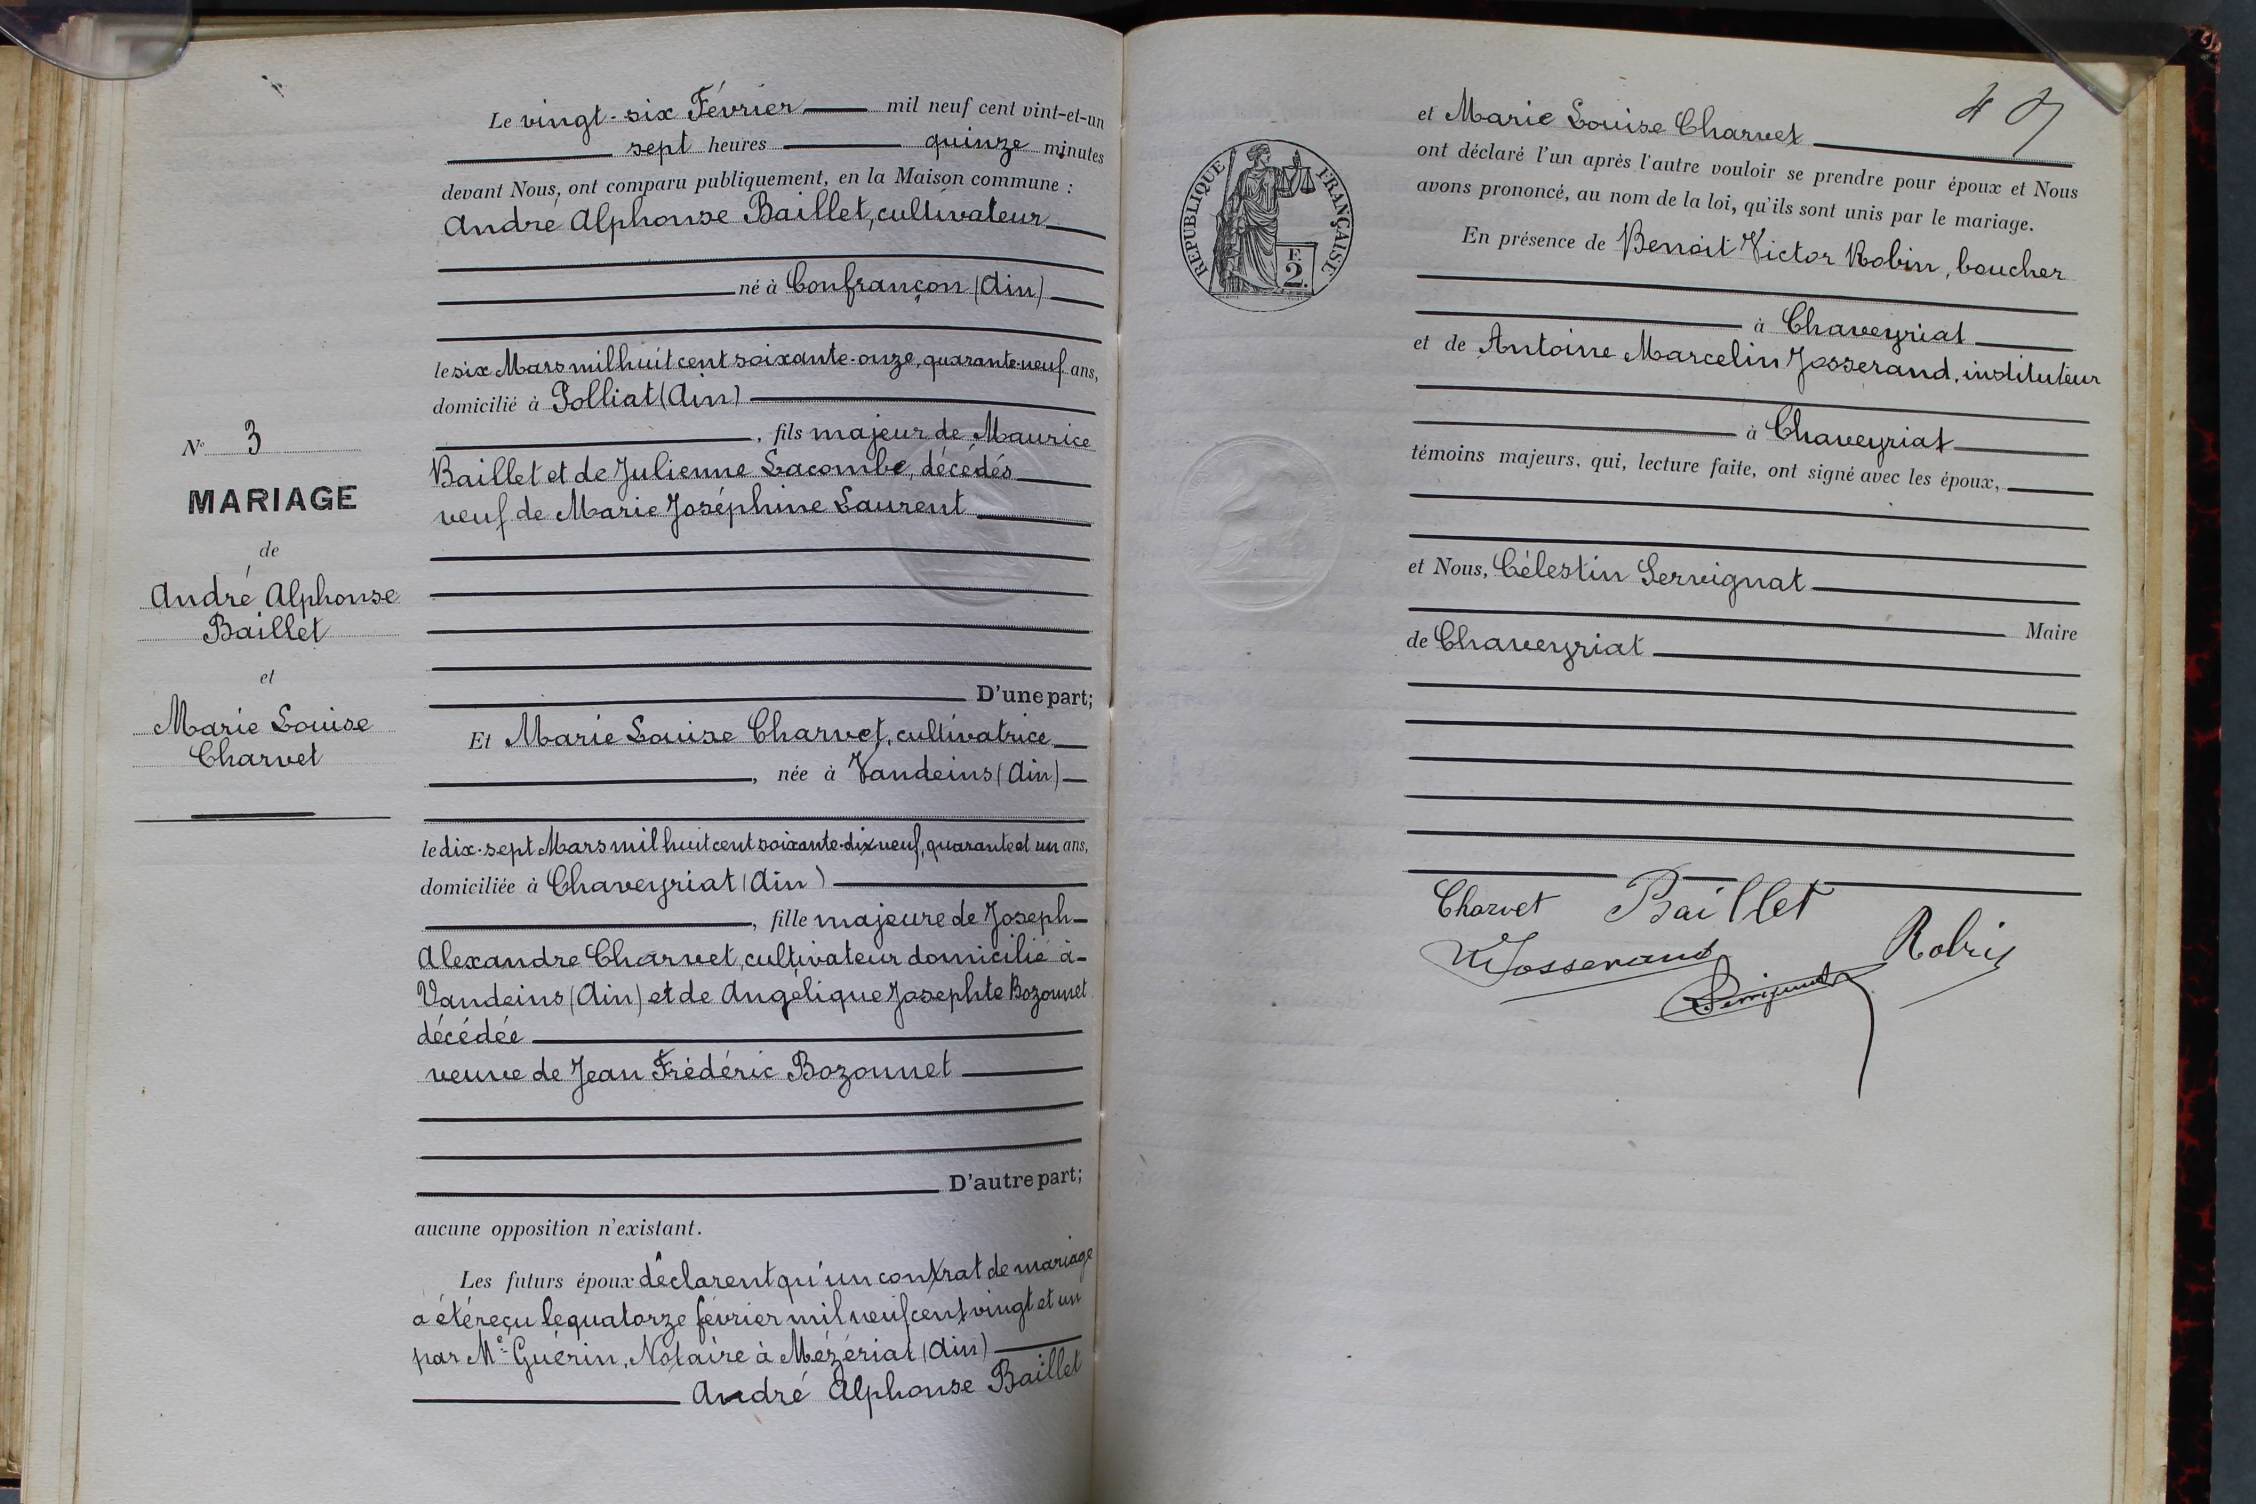 Le vingt-six Février mil neuf cent vint-et-un
sept heures quinze minutes
devant Nous, ont comparu publiquement, en la Maison commune :
André Alphonse Baillet, cultivateur
né à Confrançon (Ain)
le six Mars mil huit cent soixante-onze, quarante-neuf ans,
domicilié à Polliat (Ain)
, fils majeur de Maurice
Baillet et de Julienne Lacombe, décédés
veuf de Marie Joséphine Laurent
D'une part;
Et Marie Louise Charvet, cultivatrice
, née à Vandeins (Ain)
le dix-sept Mars mil huit cent soixante-dix neuf, quarante et un ans,
domiciliée à Chaveyriat (Ain)
, fille majeure de Joseph
Alexandre Charvet, cultivateur domicilié à
Vandeins (Ain) et de Angélique Josephte Bozonnet
décédée
veuve de Jean Frédéric Bozonnet
D'autre part;
aucune opposition n'existant.
Les futurs époux déclarent qu'un contrat de mariage
a été reçu le quatorze février mil neuf cent vingt et un
par Me Guérin, Notaire à Mézériat (Ain)
André Alphonse Baillet
No 3
MARIAGE
de
André Alphonse
Baillet
et
Marie Louise
Charvet
RÉPUBLIQUE FRANÇAISE
F.
2.
et Marie Louise Charvet
ont déclaré l'un après l'autre vouloir se prendre pour époux et Nous
avons prononcé, au nom de la loi, qu'ils sont unis par le mariage.
En présence de Benoit Victor Robin, boucher
à Chaveyriat
et de Antoine Marcelin Josserand, instituteur
à Chaveyriat
témoins majeurs, qui, lecture faite, ont signé avec les époux,
et Nous, Célestin Servignat
Maire
de Chaveyriat
Charvet Baillet
Josserand Robin
Servignat